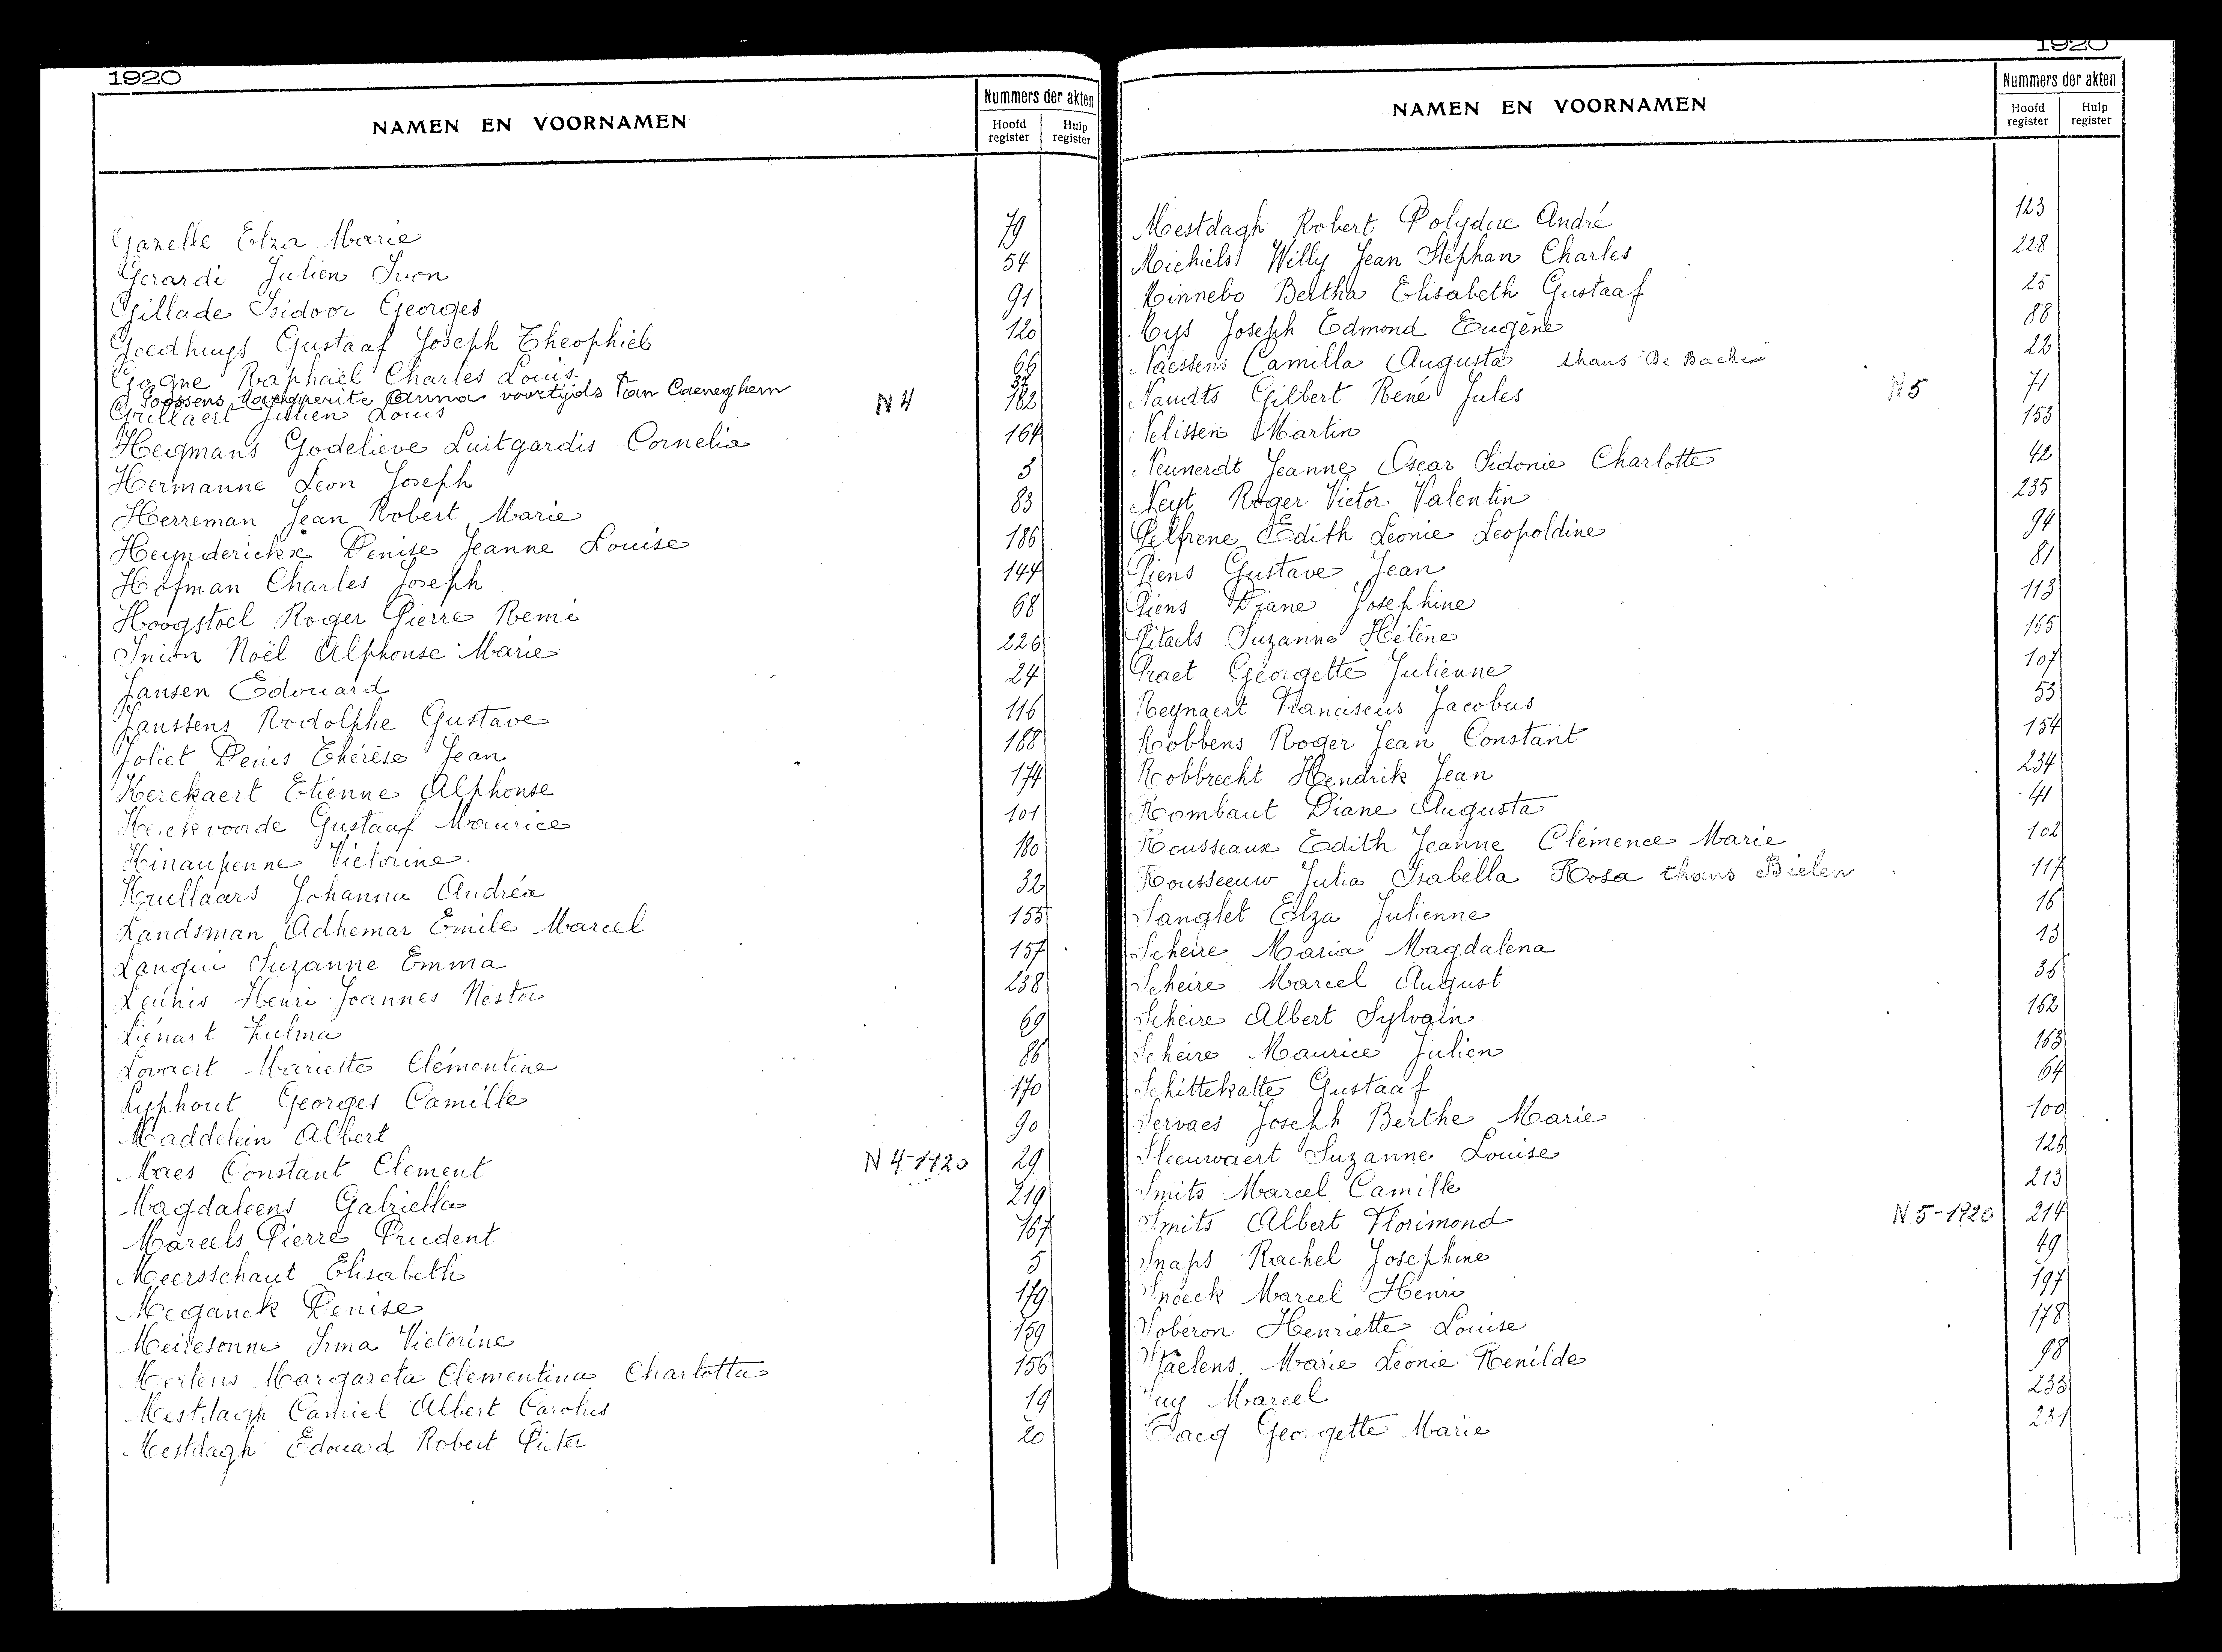 1920
NAMEN EN VOORNAMEN
Nummers der akten
Hoofd register
Hulp register
Gazelle Elza Marie 79
Gerardi Julien Ivon 54
Gillade Isidoor Georges 91
Goedhuys Gustaaf Joseph Theophiel 120
Gogne Raphaël Charles Louis 66
Goossens Marguerite Anna voortijds Van Caeneghem 37
Grillaert Julien Louis N 4 182
Hegmans Godelieve Luitgardis Cornelia 164
Hermanne Leon Joseph 3
Herreman Jean Robert Marie 83
Heynderickx Denise Jeanne Louise 186
Hofman Charles Joseph 144
Hoogstoel Roger Pierre Remi 68
Inion Noël Alphonse Marie 226
Jansen Edouard 24
Janssens Rodolphe Gustave 116
Joliet Denis Thérèse Jean 188
Kerckaert Etienne Alphonse 174
Kerckvoorde Gustaaf Maurice 101
Kinaupenne Victorine 180
Krullaars Johanna Andréa 32
Landsman Adhemar Emile Marcel 155
Langui Suzanne Emma 157
Leunis Henri Joannes Nestor 238
Liénart Zulma 69
Lovaert Mariette Clémentine 86
Lyphout Georges Camille 170
Maddelein Albert 90
Maes Constant Clement N 4-1920 29
Magdaleens Gabriella 219
Mareels Pierre Prudent 167
Meersschaut Elisabeth 5
Meganck Denise 179
Meiresonne Irma Victorine 159
Mertens Margareta Clementina Charlotta 156
Mestdagh Camiel Albert Carolus 19
Mestdagh Edouard Robert Pieter 20
1920
NAMEN EN VOORNAMEN
Nummers der akten
Hoofd register
Hulp register
Mestdagh Robert Polydoc André 123
Michiels Willy Jean Stéphan Charles 228
Minnebo Bertha Elisabeth Gustaaf 25
Mys Joseph Edmond Eugène 88
Naessens Camilla Augusta thans De Backer 22
Naudts Gilbert René Jules N 5 71
Nelissen Martin 153
Neunerdt Jeanne Oscar Sidonie Charlotte 42
Neyt Roger Victor Valentin 235
Pelfrene Edith Leonie Leopoldine 94
Piens Gustave Jean 81
Piens Diane Josephine 113
Pitaels Suzanne Hélène 165
Praet Georgette Julienne 107
Reynaert Franciscus Jacobus 53
Robbens Roger Jean Constant 154
Robbrecht Hendrik Jean 234
Rombaut Diane Augusta 41
Rousseaux Edith Jeanne Clémence Marie 102
Rousseeuw Julia Isabella Rosa thans Bielen 117
Sanglet Elza Julienne 16
Scheire Maria Magdalena 13
Scheire Marcel August 36
Scheire Albert Sylvain 162
Scheire Maurice Julien 163
Schittekatte Gustaaf 64
Servaes Joseph Berthe Marie 100
Sleeuwaert Suzanne Louise 126
Smits Marcel Camille 213
Smits Albert Florimond N 5-1920 214
Snaps Rachel Josephine 49
Snoeck Marcel Henri 197
Soberon Henriette Louise 178
Staelens Marie Léonie Renilde 98
Suy Marcel 233
Tacq Georgette Marie 231